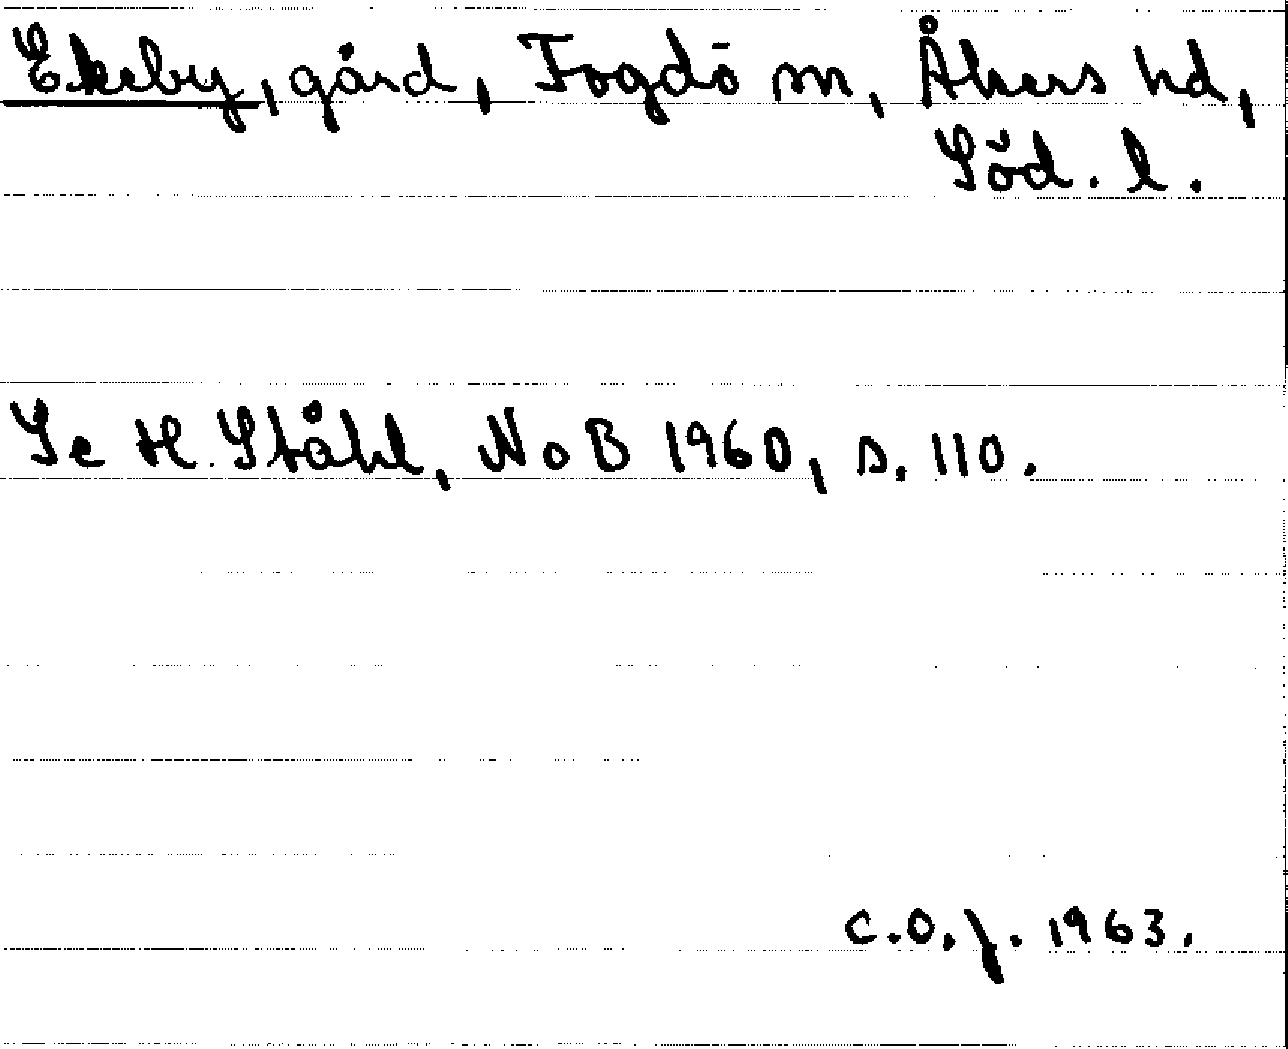 Ekeby, gård, Fogdö sn, Åkers hd,
Söd. l.
Se H. Ståhl, NoB 1960, s. 110.
C.O.J. 1963.